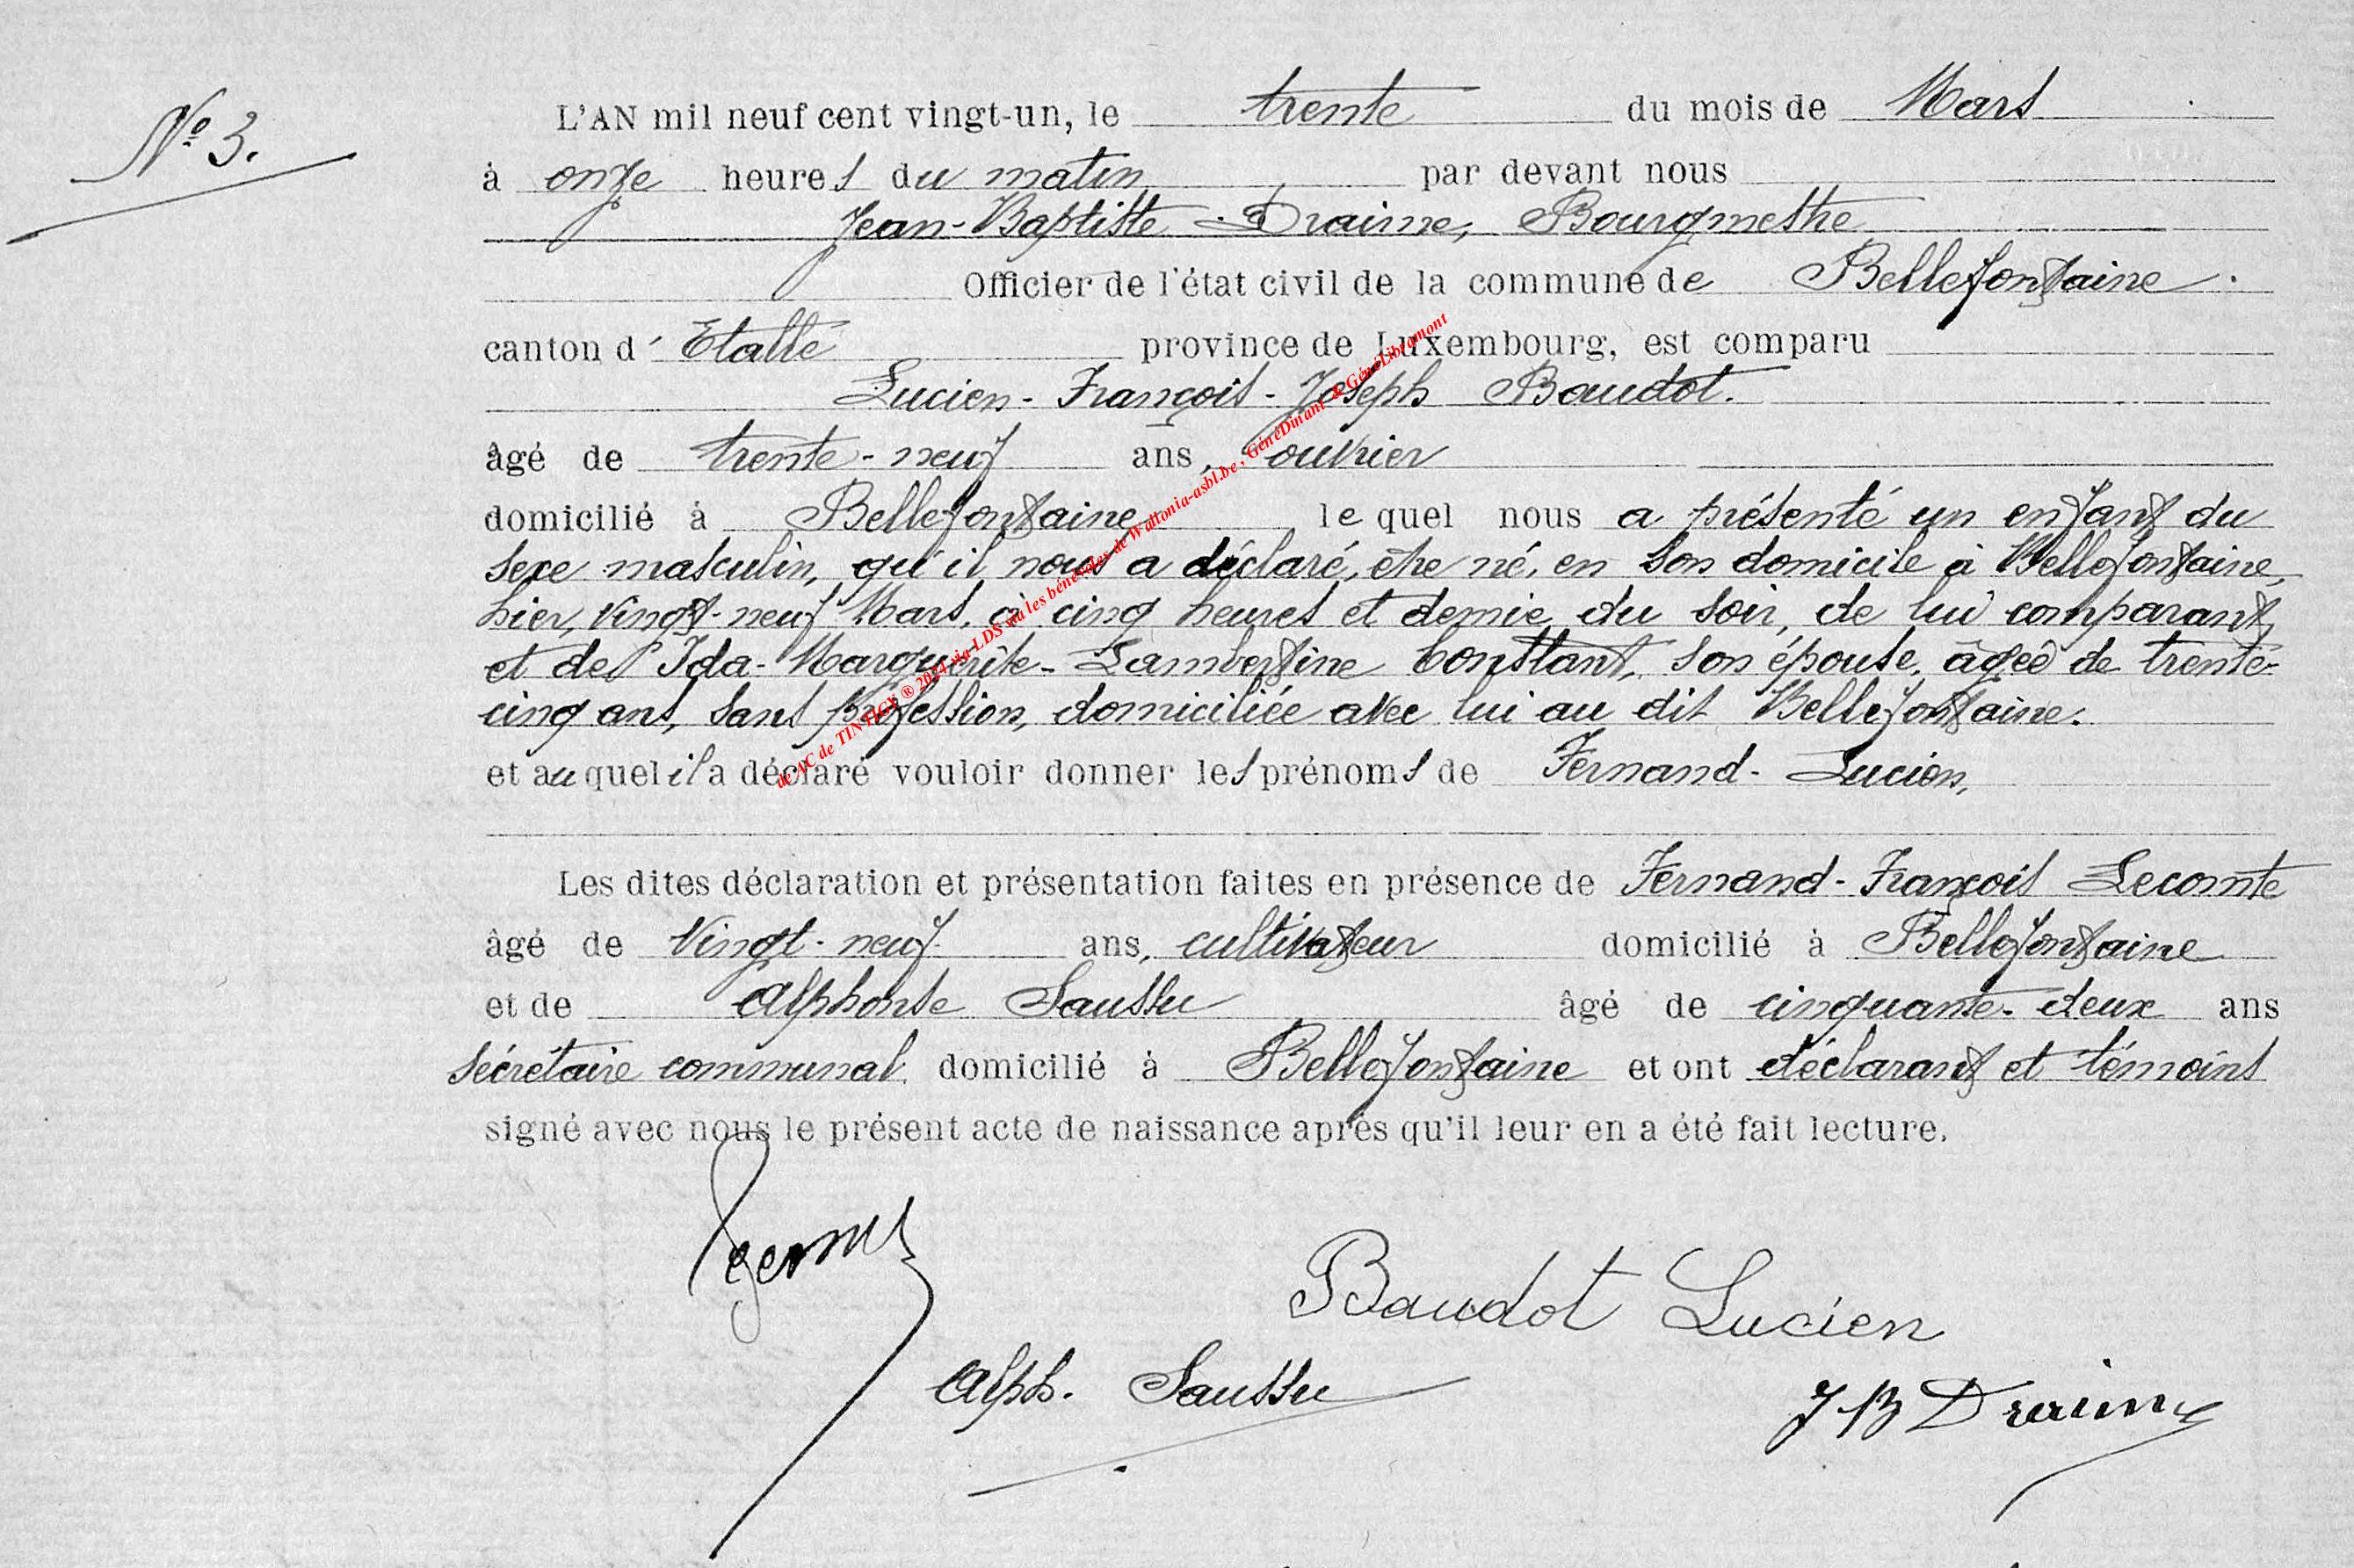 N° 3.
L'AN mil neuf cent vingt-un, le trente du mois de Mars
à onze heures du matin par devant nous
Jean-Baptiste Draime, Bourgmestre
Officier de l'état civil de la commune de Bellefontaine.
canton d'Etalle province de Luxembourg, est comparu
Lucien-François-Joseph Baudot.
âgé de trente-neuf ans, ouvrier
domicilié à Bellefontaine, lequel nous a présenté un enfant du
sexe masculin, qu'il nous a déclaré, être né, en son domicile à Bellefontaine,
hier, vingt-neuf Mars, à cinq heures et demie du soir, de lui comparant,
et de Ida-Marguerite-Lambertine Constant, son épouse, âgée de trente-
cinq ans, sans profession, domiciliée avec lui au dit Bellefontaine.
et auquel il a déclaré vouloir donner les prénoms de Fernand-Lucien,
Les dites déclaration et présentation faites en présence de Fernand-François Lecomte
âgé de vingt-neuf ans, cultivateur domicilié à Bellefontaine
et de Alphonse Saussu âgé de cinquante-deux ans
sécrétaire communal, domicilié à Bellefontaine et ont déclarant et témoins
signé avec nous le présent acte de naissance après qu'il leur en a été fait lecture.
Baudot Lucien
Alph. Saussu
J B Draime
de AC de TINTIGNY ® 2024 via LDS via les bénévoles de Wallonia-asbl.be, GénéDinant & GénéLibramont